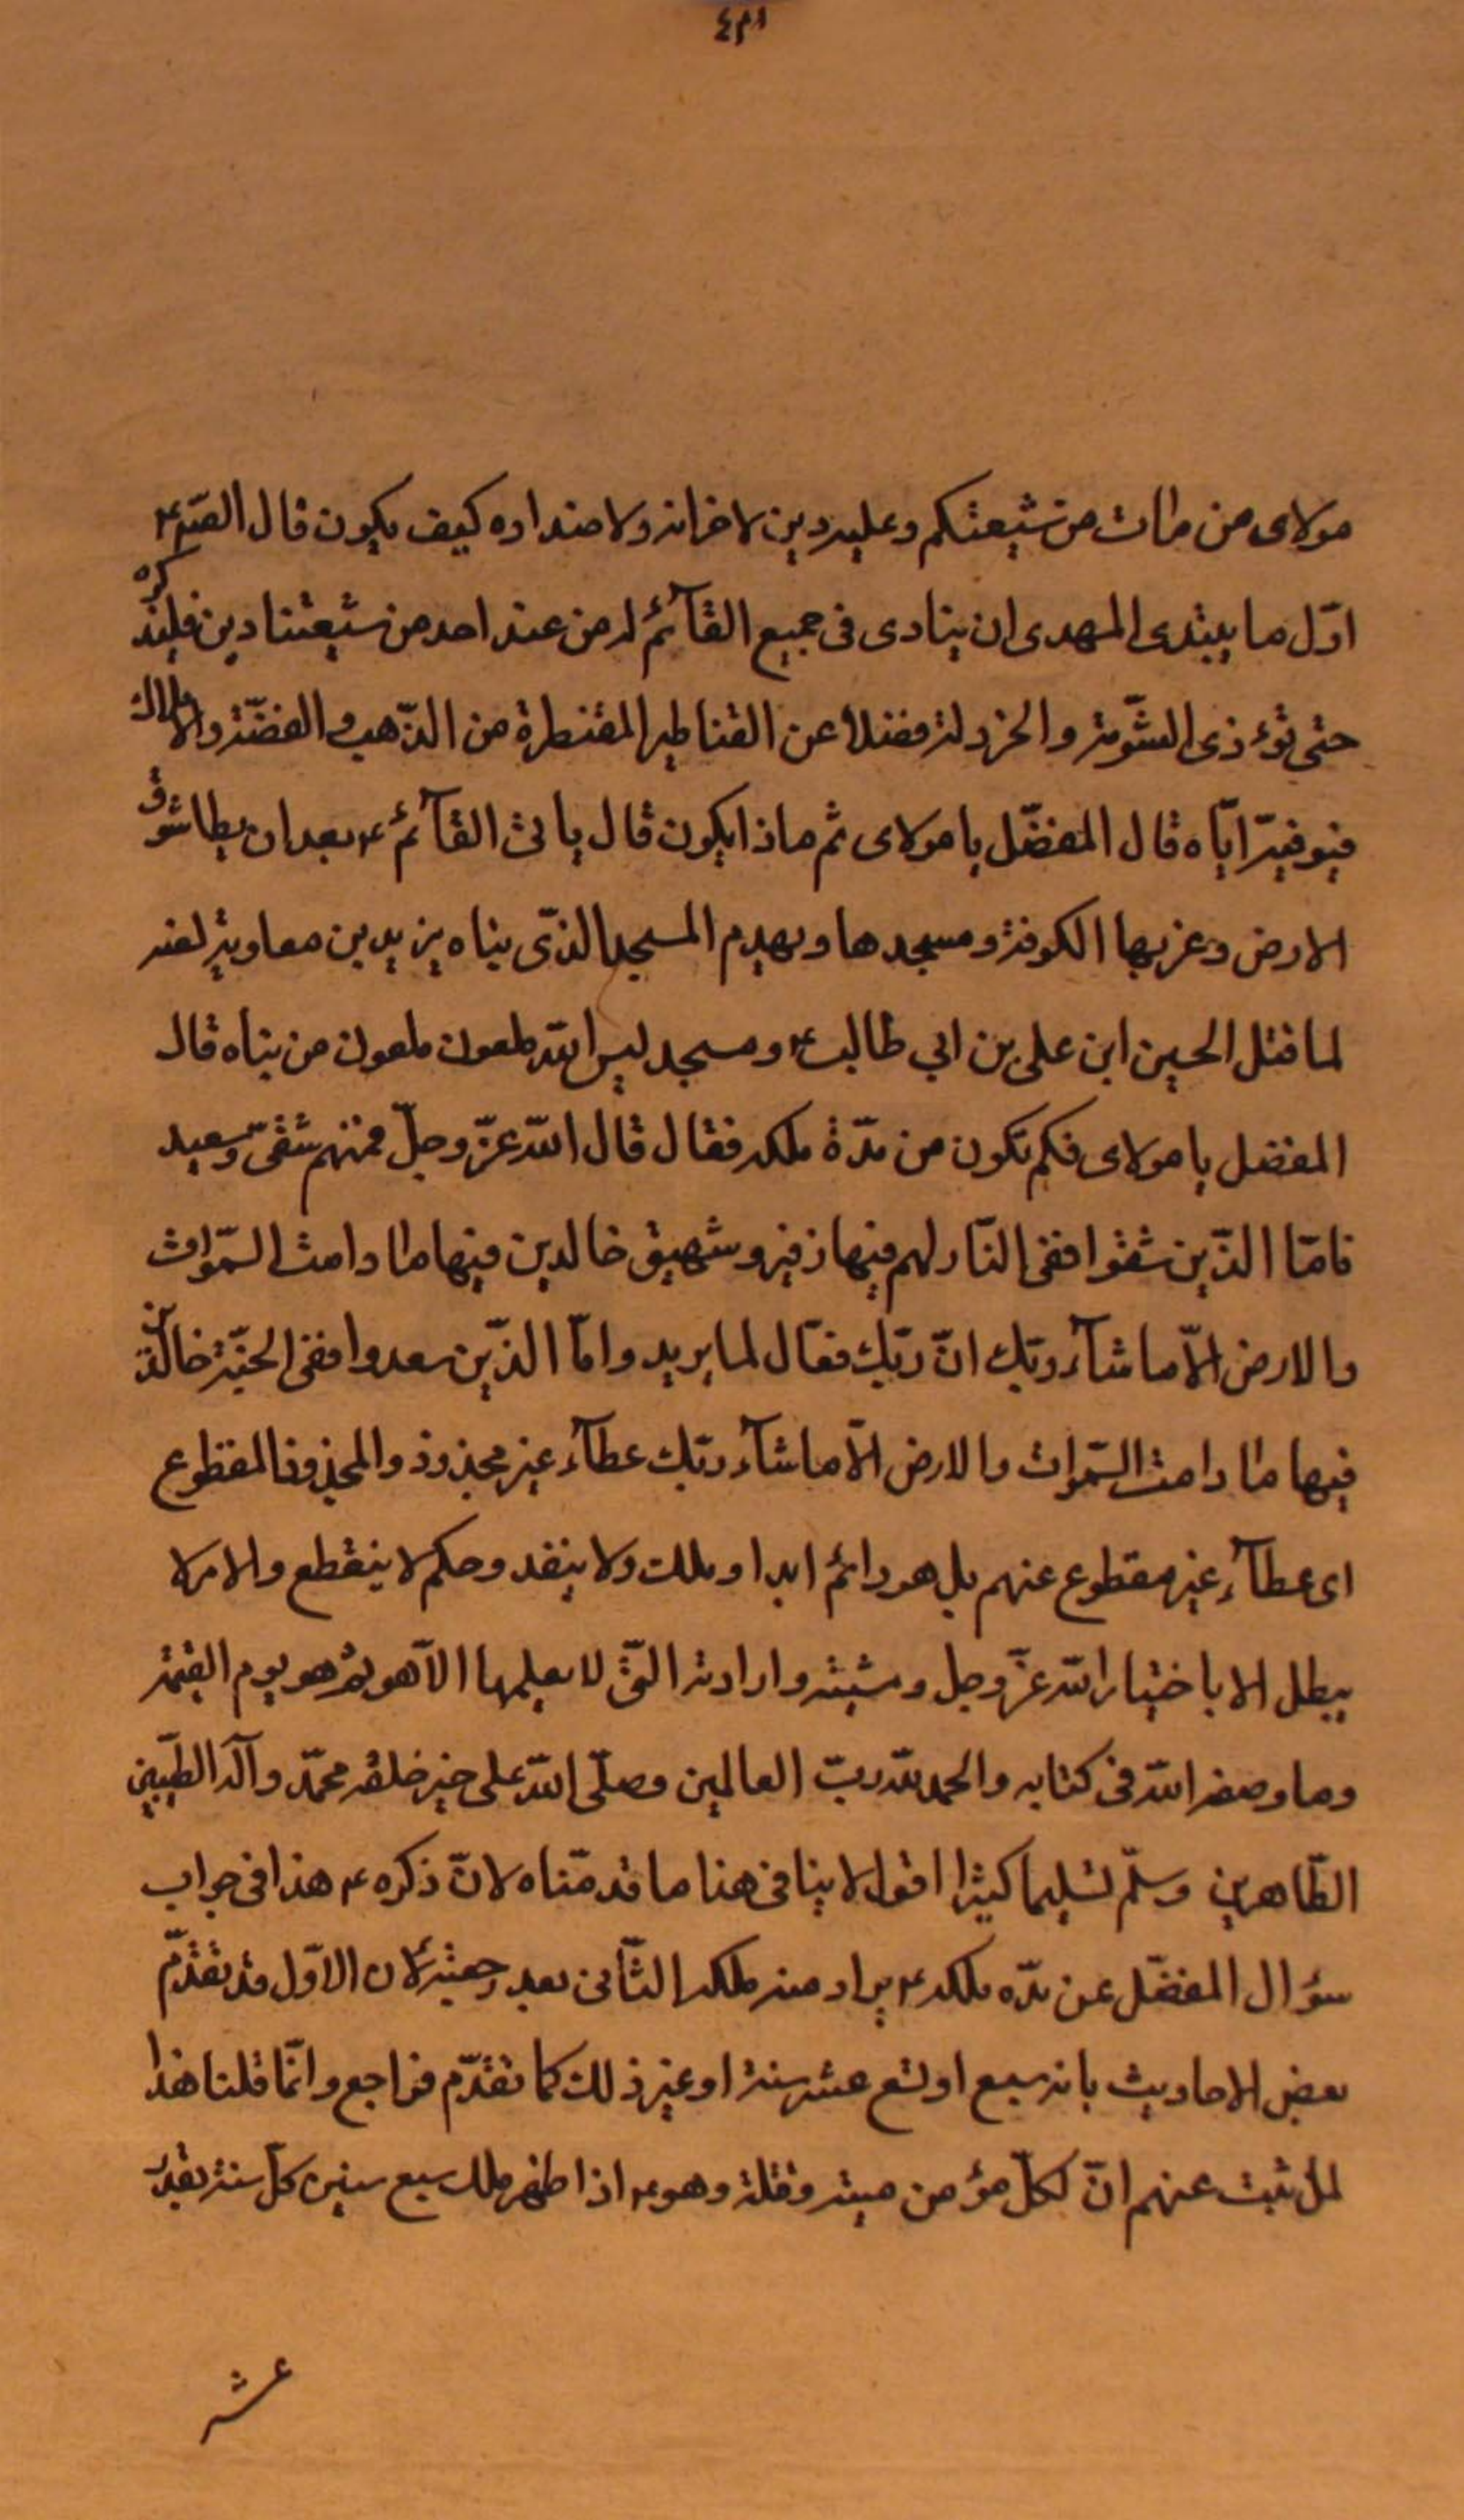 مولاى من مات من شيعتكم وعليه دين لاخوانه ولاضداده كيف يكون قال الصّ ع
اوّل ما يبتدى المهدى ان ينادى فى جميع القآئم له من عند احد من شيعتنا دين فليذكره
حتى تؤذى الثومة والخردلة فضلا عن القناطير المقنطرة من الذّهب والفضّة والاملاك
فيوفيه ايّاه قال المفضّل يا مولاى ثم ماذا يكون قال ياتى القآئم ع بعد ان يطا شرق
الارض وغربها الكوفة ومسجدها ويهدم المسجد الذّى بناه يزيد بن معاوية لعنه
لما قتل الحسين ابن على بن ابي طالب ع ومسجد ليس لله ملعون ملعون من بناه قال
المفضل يا مولاى فكم تكون من مدّة ملكه فقال قال اللّه عزّ وجلّ فمنهم شقىّ وسعيد
فامّا الذّين شقوا ففى النّار لهم فيها زفير وشهيق خالدين فيها ما دامت السمّوات
والارض الاّ ما شآء ربّك انّ ربّك فعّال لما يريد وامّا الذّين سعدوا ففى الجنّة خالدين
فيها ما دامت السمّوات والارض الاّ ما شآء ربّك عطآء غير مجذوذ والمجذوذ المقطوع
اى عطآء غير مقطوع عنهم بل هو دائم ابدا وملك ولا ينفد وحكم لا ينقطع والامر لا
يبطل الا باختيار اللّه عزّ وجل ومشيته وارادته التّى لا يعلمها الاّ هو ثم هو يوم القيمة
وما وصفه اللّه فى كتابه والحمد للّه ربّ العالمين وصلّى اللّه على خير خلقه محمّد وآله الطيّبين
الطّاهرين وسلّم تسليما كثيرا اقول لا ينافى هنا ما قدمّناه لانّ ذكره ع هذا فى جواب
سؤال المفضّل عن مدّه ملكه ع يراد منه ملكه الثّانى بعد رجعته لان الاوّل قد تقدّم
بعض الاحاديث بانه سبع او تسع عشر سنة او غير ذلك كما تقدّم فراجع وانّما قلنا هذا
لما ثبت عنهم انّ لكلّ مؤمن ميتة وقتلة وهو ع اذا ظهر ملك سبع سنين كلّ سنة بقدر
عشر